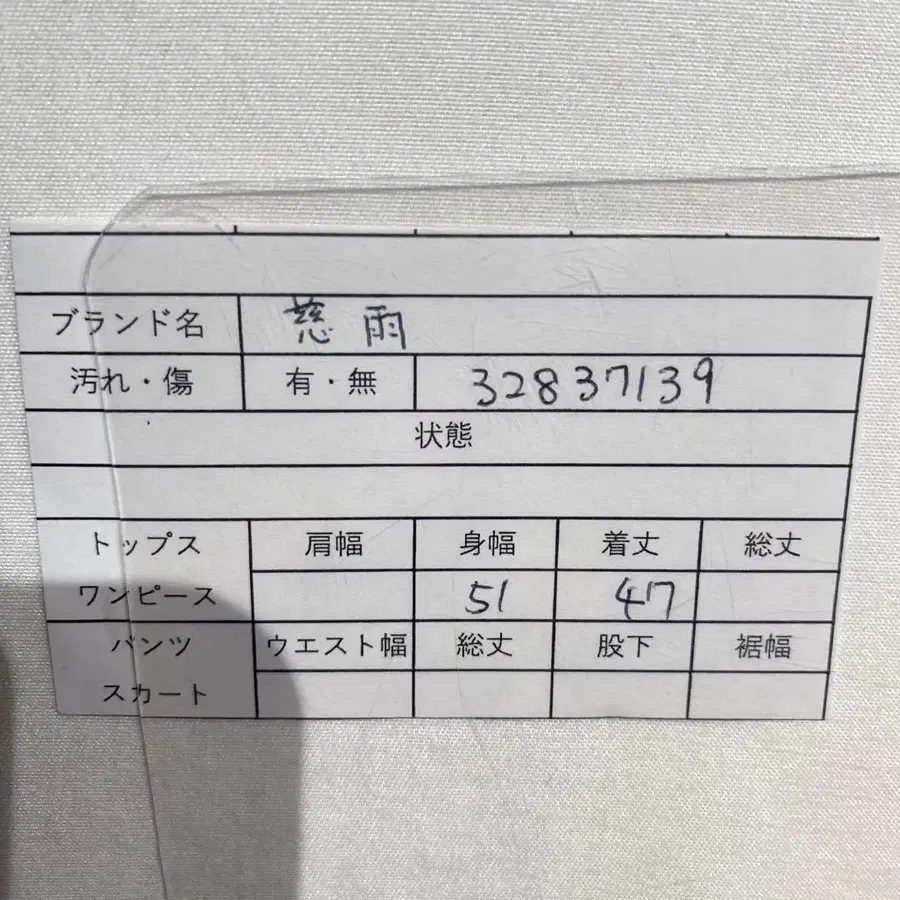 ブランド名 慈雨
汚れ・傷 有・無 32837139
状態
トップス 肩幅 身幅 着丈 総丈
ワンピース 51 47
パンツ ウエスト幅 総丈 股下 裾幅
スカート